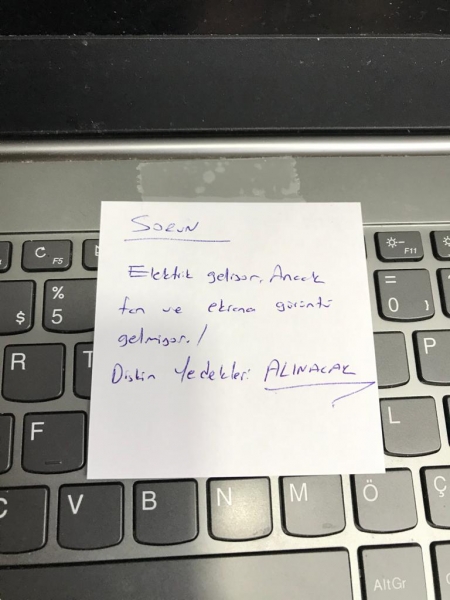 SORUN
Elektrik geliyor. Ancak
fan ve ekrana görüntü
gelmiyor.!
Diskin Yedekleri ALINACAK
F5
F11
$
%
5
=
0 }
R
T
P
F
L
C V B N M Ö Ç
AltGr